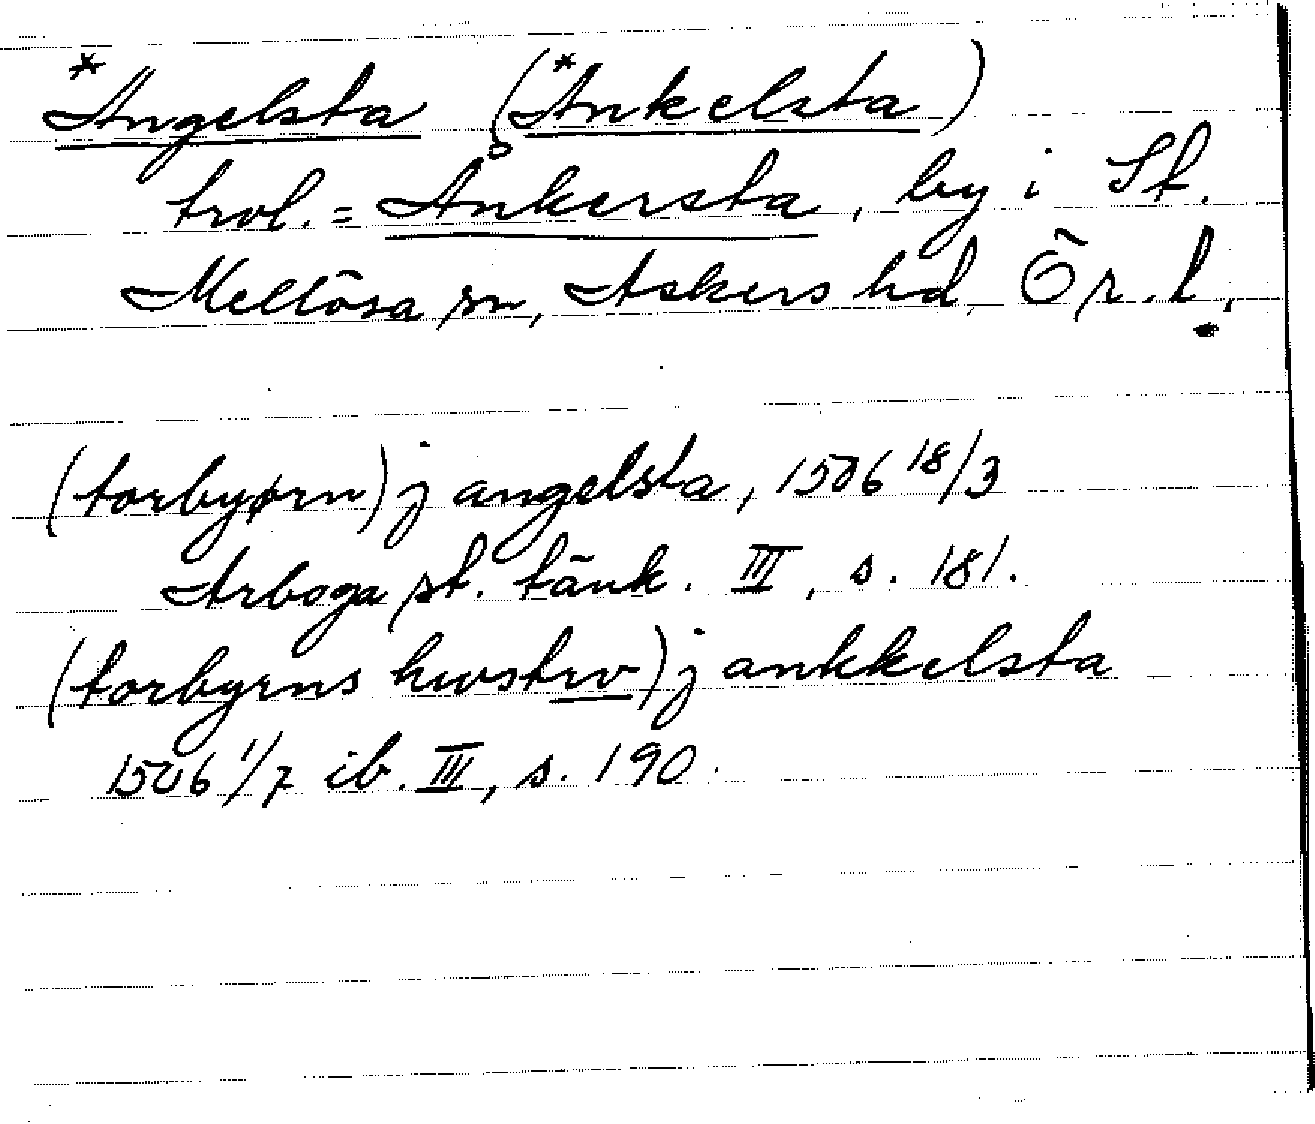 *Angelsta (*Ankelsta)
trol. = Ankersta, by i St.
Mellösa sn, Askers hd, Ör. l.
(torbyørn) j angelsta, 1506 18/3
Arboga st. tänk. III, s. 181.
(torbyrns hwstrv) j ankkelsta
1506 1/7 ib. III, s. 190.